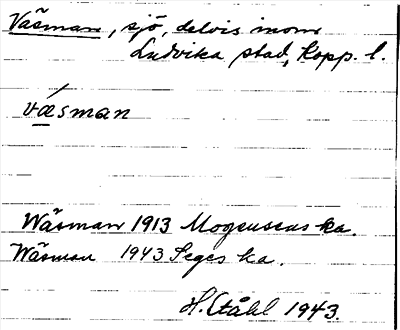 Väsman, sjö, delvis inom
Ludvika stad, Kopp. l.
vǽ̲sman
Wäsman 1913 Mogensens ka.
Wäsman 1943 Seges ka.
H. Ståhl 1943.